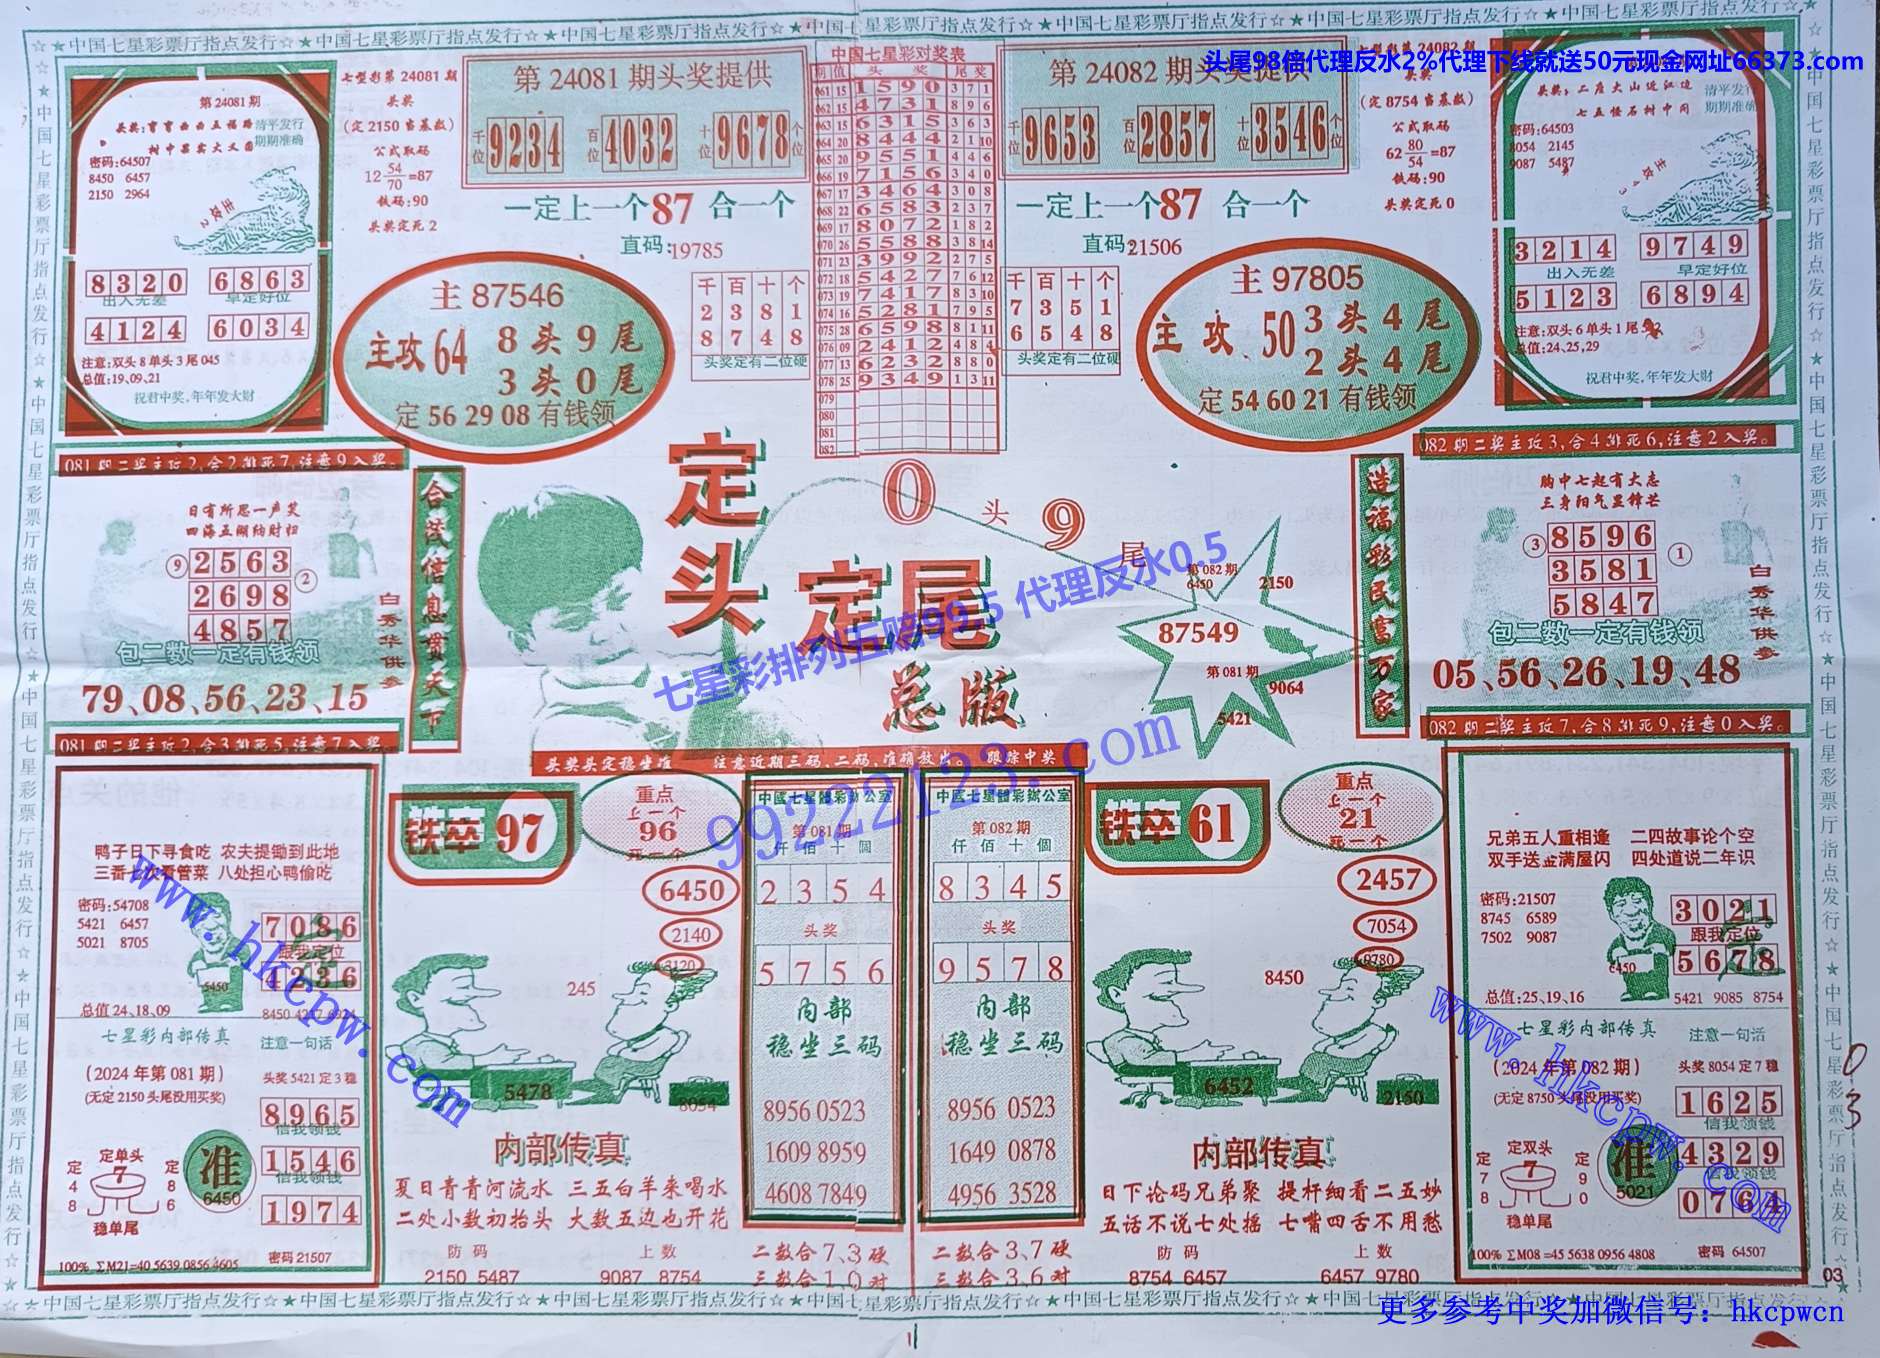 ☆★中国七星彩票厅指点发行☆★中国七星彩票厅指点发行☆★中国七星彩票厅指点发行☆★中国七星彩票厅指点发行☆★
头尾98倍代理反水2%代理下线就送50元现金网址66373.com
第 24081 期
清平发行
期期准确
密码:64507
8450 6457
2150 2964
主攻2
8320 6863
出入无差 早定好位
4124 6034
注意:双头 8 单头 3 尾 045
总值:19,09,21
祝君中奖,年年发大财
七星彩第 24081 期
头奖
(定 2150 当基数)
公式取码
12 54/70 =87
铁码:90
头奖定死 2
第 24081 期头奖提供
千位 9234 百位 4032 十位 9678 个位
一定上一个87 合一个
直码:19785
主 87546
主攻 64
8 头 9 尾
3 头 0 尾
定 56 29 08 有钱领
千 百 十 个
2 3 8 1
8 7 4 8
头奖定有二位硬
中国七星彩对奖表
期 值 头 奖 尾 奖
061 15 1590 3 7 1
062 15 4731 8 9 6
063 15 6315 3 6 3
064 20 8444 2 1 10
065 20 9551 4 4 6
066 19 7156 3 4 0
067 17 3464 3 0 8
068 22 6583 2 3 7
069 17 8072 1 8 2
070 26 5588 3 8 14
071 23 3992 2 7 5
072 18 5427 7 6 12
073 19 7417 8 3 10
074 16 5281 7 9 5
075 28 6598 8 1 11
076 09 2412 4 8 4
077 13 6232 8 8 0
078 25 9349 1 3 11
079
080
081
082
第 24082 期头奖提供
千位 9653 百位 2857 十位 3546 个位
一定上一个87 合一个
直码:21506
千 百 十 个
7 3 5 1
6 5 4 8
头奖定有二位硬
主 97805
主 攻 50
3 头 4 尾
2 头 4 尾
定 54 60 21 有钱领
(定 8754 当基数)
公式取码
62 80/54 =87
铁码:90
头奖定死 0
头奖:二座大山近江边
七五怪石树中间
清平发行
期期准确
密码:64503
8054 2145
9087 5487
3214 9749
出入无差 早定好位
5123 6894
注意:双头 6 单头 1 尾
总值:24,25,29
祝君中奖,年年发大财
081 期二奖主攻 2,合 2 排死 7,注意 9 入奖。
日有所思一声笑
四海五湖纳财归
⑨ 2563 ②
2698
4857
包二数一定有钱领
白秀华供参
79、08、56、23、15
081 期二奖主攻 2,合 3 排死 5,注意 7 入奖。
合茂信息贯天下
定头
定尾
总版
0 头 9 尾
第 082 期
6450
2150
87549
第 081 期
9064
5421
七星彩排列五赔99.5 代理反水0.5
99222123.com
造福彩民富万家
082 期二奖主攻 3,合 4 排死 6,注意 2 入奖。
胸中七起有大志
三身阳气显锋芒
③ 8596 ①
3581
5847
包二数一定有钱领
白秀华供参
05、56、26、19、48
082 期二奖主攻 7,合 8 排死 9,注意 0 入奖。
头奖头定稳坐准 注意近期三码,二码,准确放出。 跟踪中奖
鸭子日下寻食吃 农夫提锄到此地
三番七次看管菜 八处担心鸭偷吃
密码:54708
5421 6457
5021 8705
5450
7086
跟我定位
4236
总值 24、18、09
七星彩内部传真 注意一句话
(2024 年第 081 期) 头奖 5421 定 3 稳
(无定 2150 头尾没用买奖)
8965
信我领钱
1546
信我领钱
1974
定单头
7
定 4 8
定 8 6
稳单尾
准
6450
100% ΣM21=40 5639 0856 4605 密码 21507
铁卒 97
重点
上一个
96
死一个
6450
2140
245
5478
8054
内部传真
夏日青青河流水 三五白羊来喝水
二处小数初抬头 大数五边也开花
防 码 上 数
2150 5487 9087 8754
中國七星體彩辦公室
第 081 期
仟 佰 十 個
2 3 5 4
头 奖
5 7 5 6
内部
稳坐三码
8956 0523
1609 8959
4608 7849
二数合 7、3 硬
三数合 1、0 对
中國七星體彩辦公室
第 082 期
仟 佰 十 個
8 3 4 5
头 奖
9 5 7 8
内部
稳坐三码
8956 0523
1649 0878
4956 3528
二数合 3、7 硬
三数合 3、6 对
铁卒 61
重点
上一个
21
死一个
2457
7054
9780
8450
6452
2150
内部传真
日下论码兄弟聚 提杆细看二五妙
五话不说七处摇 七嘴四舌不用愁
防 码 上 数
8754 6457 6457 9780
兄弟五人重相逢 二四故事论个空
双手送金满屋闪 四处道说二年识
密码:21507
8745 6589
7502 9087
6450
3021
跟我定位
5678
总值:25、19、16 5421 9085 8754
七星彩内部传真 注意一句话
(2024 年第 082 期) 头奖 8054 定 7 稳
(无定 8750 头尾没用买奖)
1625
信我领钱
4329
信我领钱
0764
定双头
7
定 7 8
定 9 0
稳单尾
准
5021
100% ΣM08=45 5638 0956 4808 密码 64507
0
3
03
www.hkcpw.com
www.hkcpw.com
☆★中国七星彩票厅指点发行☆★中国七星彩票厅指点发行☆★中国七星彩票厅指点发行☆★中国七星彩票厅指点发行☆★
更多参考中奖加微信号：hkcpwcn